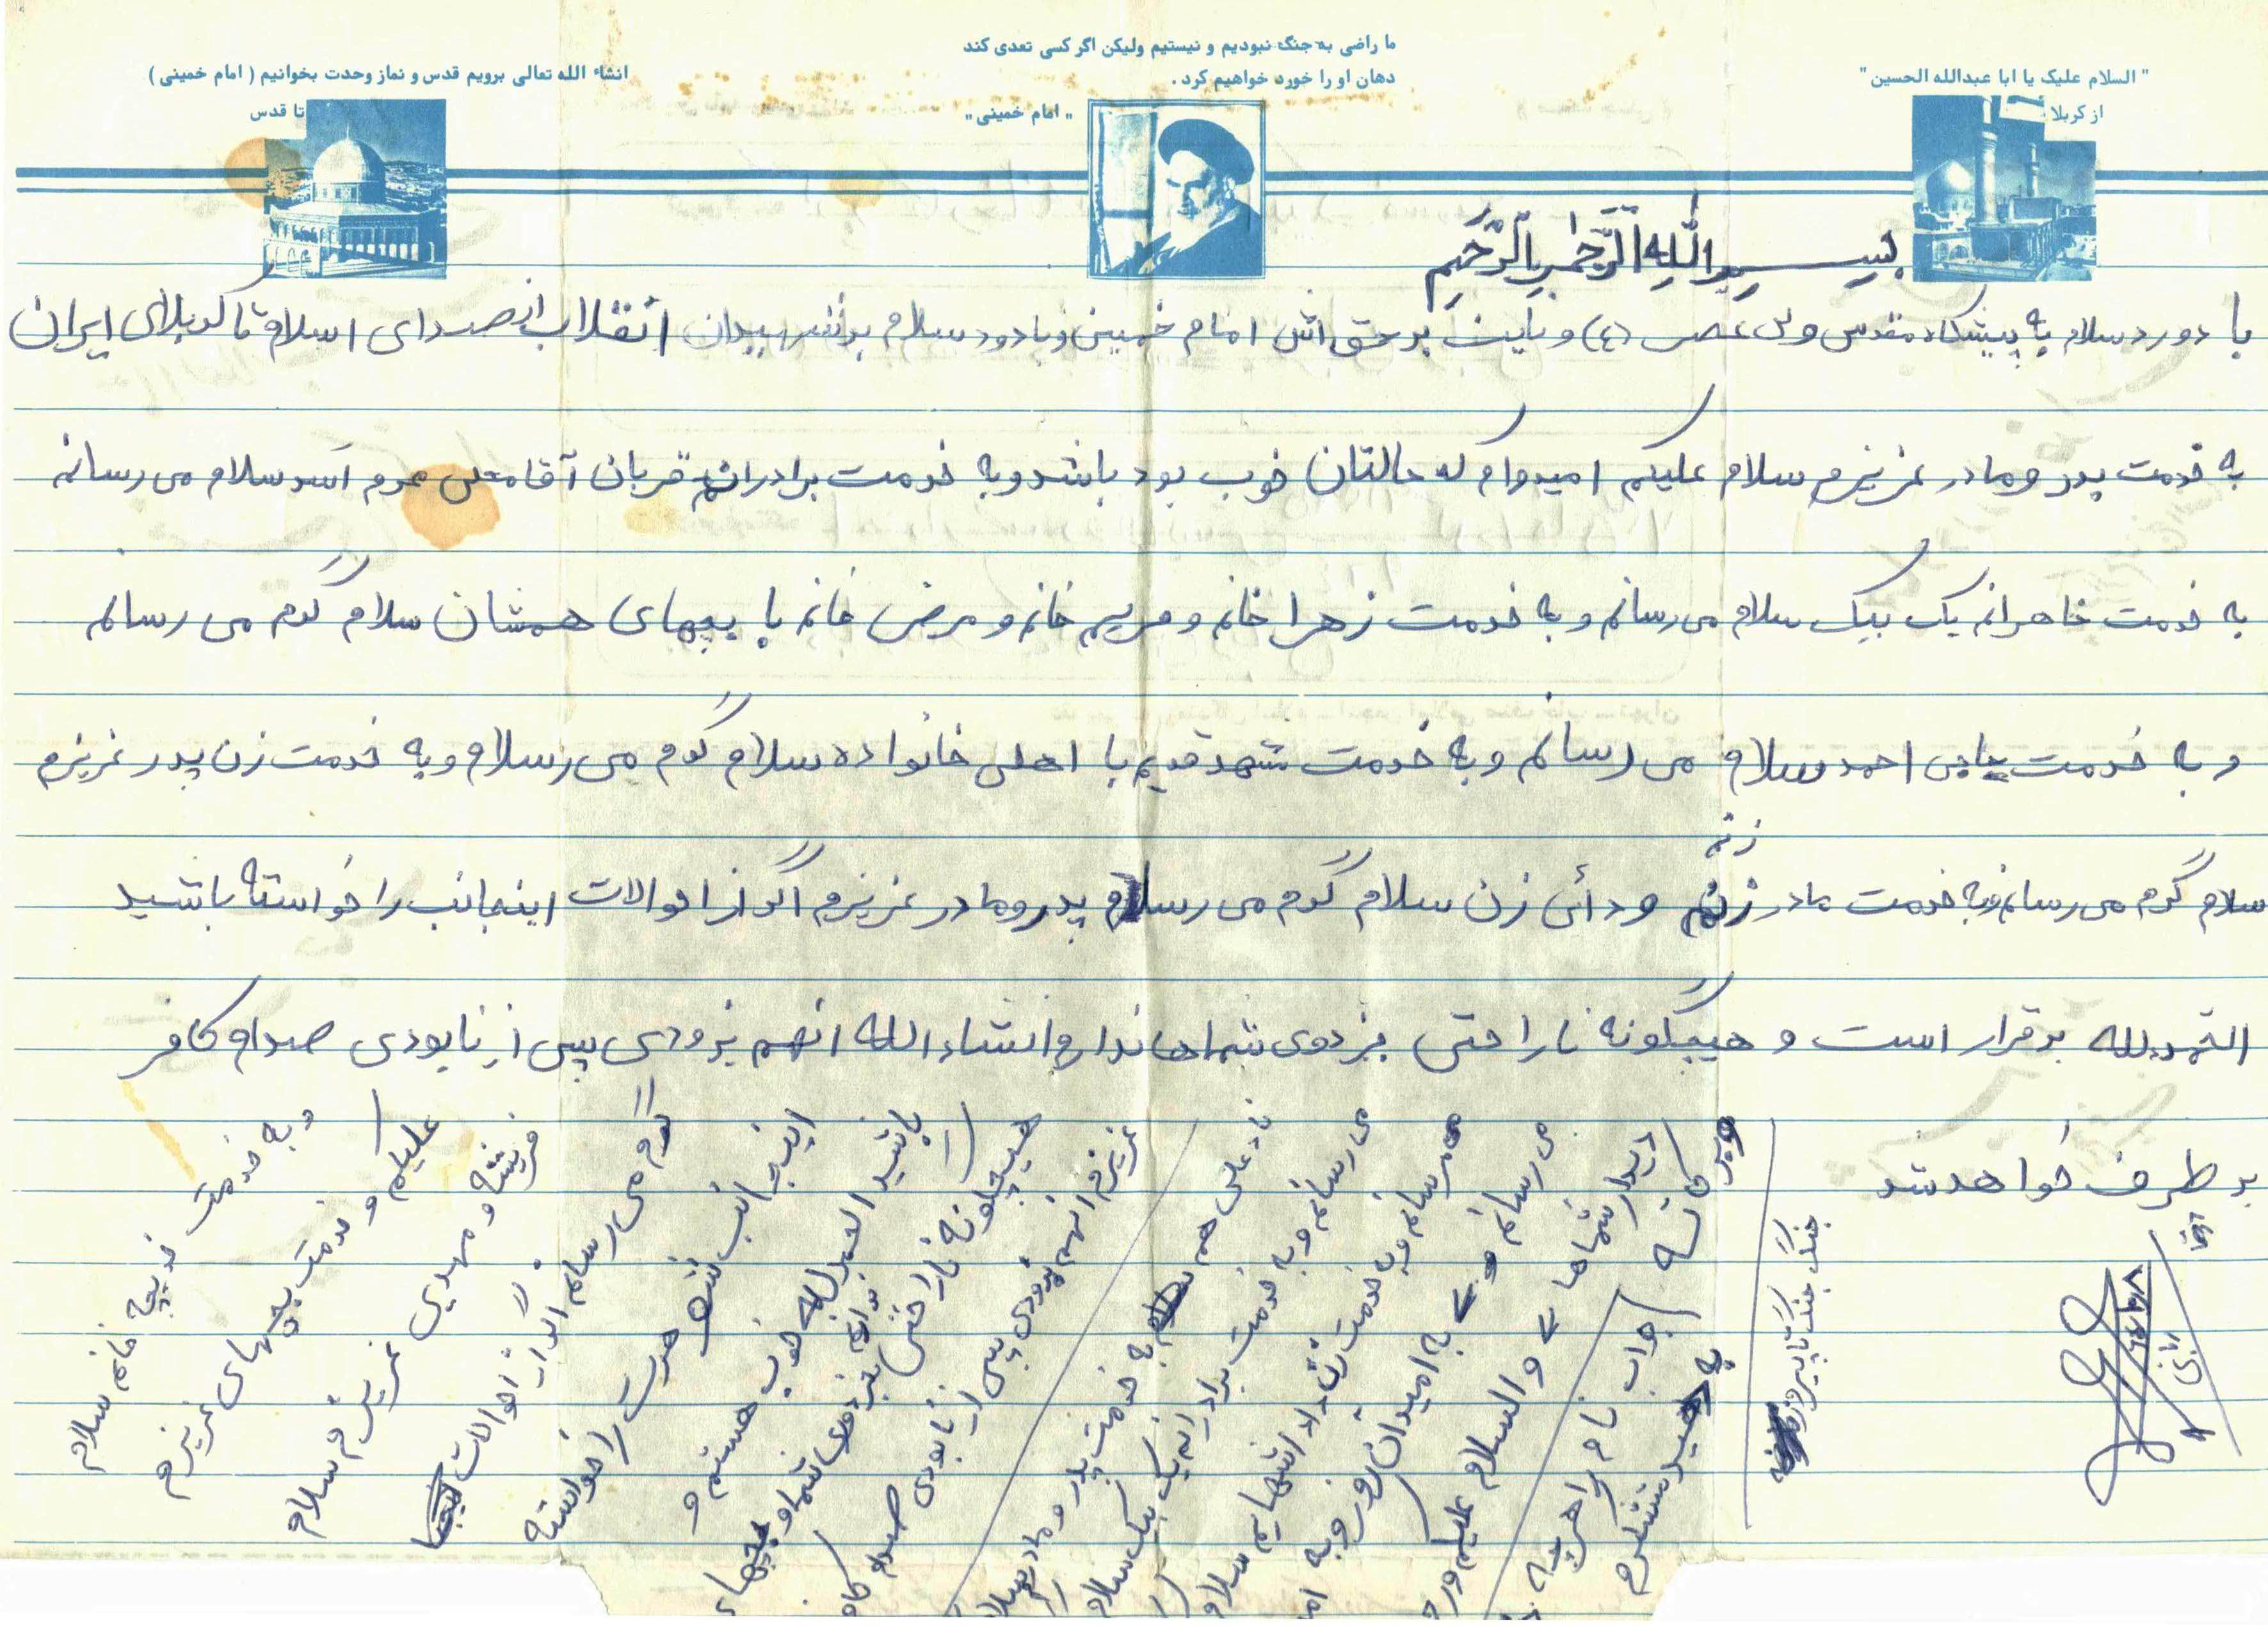 " السلام علیک یا ابا عبدالله الحسین "
از کربلا
ما راضی به جنگ نبودیم و نیستیم ولیکن اگر کسی تعدی کند
دهان او را خورد خواهیم کرد .
" امام خمینی "
انشاء الله تعالی برویم قدس و نماز وحدت بخوانیم ( امام خمینی )
تا قدس
بسم الله الرحمن الرحیم
با دورد سلام به پیشگاه مقدس ولی عصر (ع) و نایب بر حق اش امام خمینی و با دورد سلام بر شهیدان انقلاب از صدای اسلام تا کربلای ایران
به خدمت پدر و مادر عزیزم سلام علیکم امیدوام که حالتان خوب بود باشد و به خدمت برادرانم قربان آقا معلی محرم اسد سلام می رسانم
به خدمت خاهرانم یک بیک سلام می رسانم و به خدمت زهرا خانم و مریم خانم و مرضی خانم با بچهای همشان سلام گرم می رسانم
و به خدمت حاجی احمد سلام می رسانم و به خدمت شهد قدیم با اهلی خانواده سلام گرم می رسلام و به خدمت زن پدر عزیزم
زنم
سلام گرم می رسانم وبه خدمت مادر زنم و دائی زن سلام گرم می رسلام پدر و مادر عزیزم اگر از احوالات اینجانب را خواسته باشید
الحمدلله برقرار است و هیچگونه ناراحتی بزدوی شماها ندارم انشاء الله انهم بزودی پس از نابودی صدام کافر
بر طرف خواهد شد
و به خدمت خدیجه خانم سلام
علیکم و خدمت بچهای عزیزم
فریشته و مهدی عزیزم سلام
گرم می رسانم اگر از احوالات
اینجانب را خواسته
باشید الحمدلله خوب هستم و
هیچگونه ناراحتی ندارم بزدوی شما و بچهای
عزیزم انهم بزودی پس از نابودی صدام کا
به خدمت پدر و مادرم سلا
می رسانم و به خدمت برادرانم یک بیک سلام
می رسانم و به خدمت
می رسانم و به امیدان روز و به ام
دیدار شماها والسلام علیکم ور
جواب نام
جنگ جنگ تا پیروزی